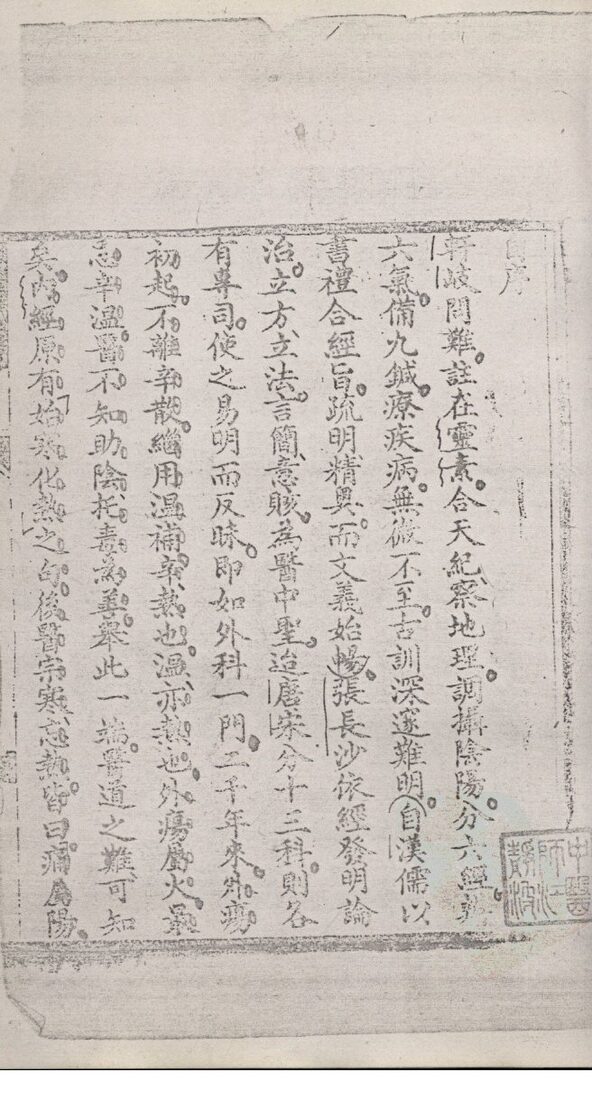 自序
軒岐問難。註在靈素。合天紀。察地理。調攝陰陽。分六經
六氣。備九鍼。療疾病。無微不至。古訓深邃難明。自漢儒以
書禮合經旨。疏明精奧。而文義始暢。張長沙依經發明論
治。立方立法。言簡意賅。為醫中聖。迨唐宋分十三科。則各
有專司。使之易明而反昧。即如外科一門。二千年來。外瘍
初起。不離辛散。繼用溫補。辛熱也。溫亦熱也。外瘍屬火。最
忌辛溫。醫不知助陰托毒為善。舉此一端。醫道之難可知
矣。內經原有始寒化熱之句。後醫宗寒忘熱。皆曰癰屬陽。
中醫師江靜波